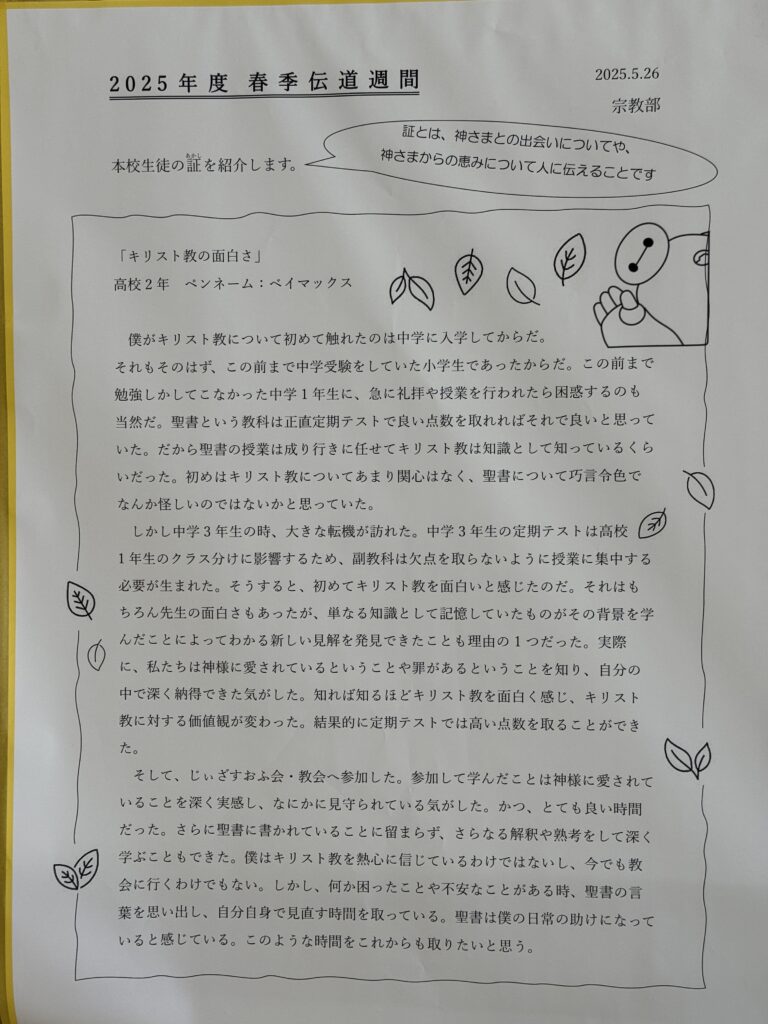 2025年度 春季伝道週間
2025.5.26
宗教部
証とは、神さまとの出会いについてや、
神さまからの恵みについて人に伝えることです
あかし
本校生徒の証を紹介します。
「キリスト教の面白さ」
高校2年 ペンネーム:ベイマックス
僕がキリスト教について初めて触れたのは中学に入学してからだ。
それもそのはず、この前まで中学受験をしていた小学生であったからだ。この前まで
勉強しかしてこなかった中学1年生に、急に礼拝や授業を行われたら困惑するのも
当然だ。聖書という教科は正直定期テストで良い点数を取れればそれで良いと思って
いた。だから聖書の授業は成り行きに任せてキリスト教は知識として知っているくら
いだった。初めはキリスト教についてあまり関心はなく、聖書について巧言令色で
なんか怪しいのではないかと思っていた。
しかし中学3年生の時、大きな転機が訪れた。中学3年生の定期テストは高校
1年生のクラス分けに影響するため、副教科は欠点を取らないように授業に集中する
必要が生まれた。そうすると、初めてキリスト教を面白いと感じたのだ。それはも
ちろん先生の面白さもあったが、単なる知識として記憶していたものがその背景を学
んだことによってわかる新しい見解を発見できたことも理由の1つだった。実際
に、私たちは神様に愛されているということや罪があるということを知り、自分の
中で深く納得できた気がした。知れば知るほどキリスト教を面白く感じ、キリスト
教に対する価値観が変わった。結果的に定期テストでは高い点数を取ることができ
た。
そして、じぃざすおふ会・教会へ参加した。参加して学んだことは神様に愛されて
いることを深く実感し、なにかに見守られている気がした。かつ、とても良い時間
だった。さらに聖書に書かれていることに留まらず、さらなる解釈や熟考をして深く
学ぶこともできた。僕はキリスト教を熱心に信じているわけではないし、今でも教
会に行くわけでもない。しかし、何か困ったことや不安なことがある時、聖書の言
葉を思い出し、自分自身で見直す時間を取っている。聖書は僕の日常の助けになって
いると感じている。このような時間をこれからも取りたいと思う。